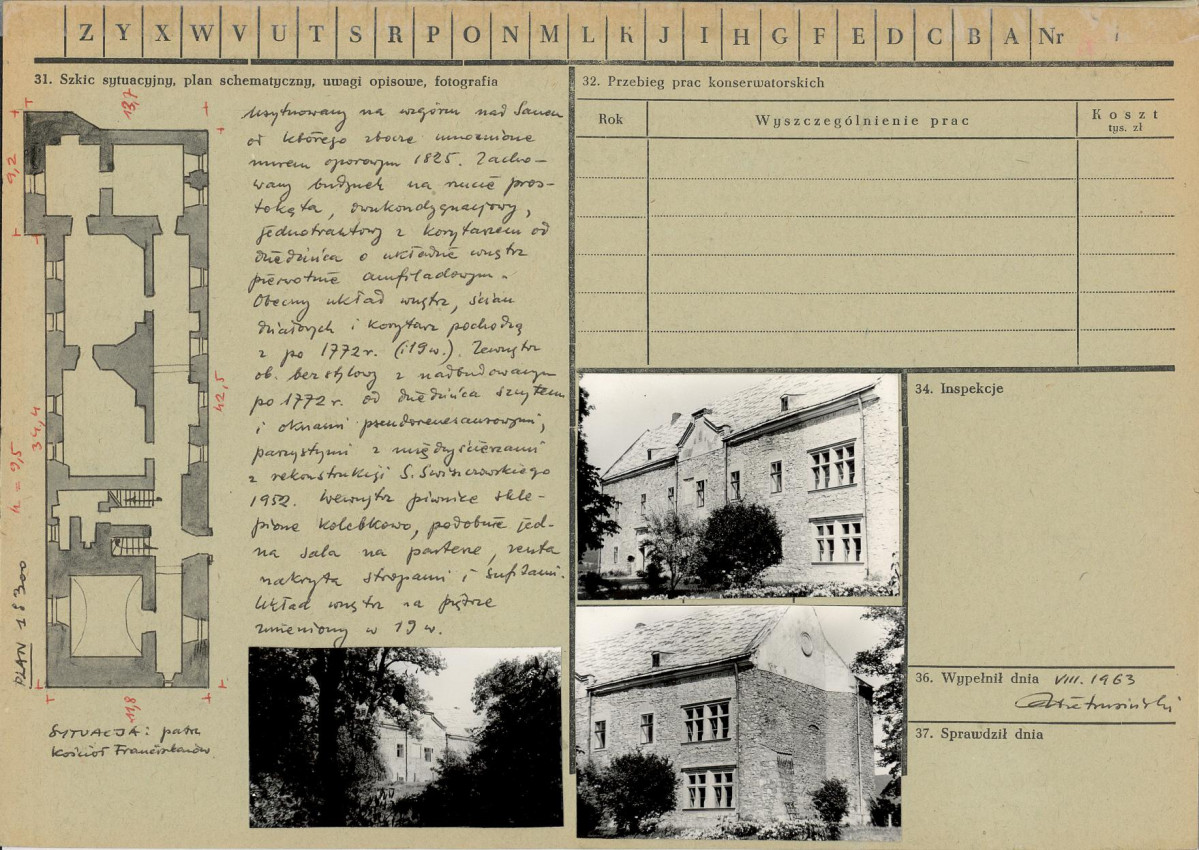 Z Y X W V U T S R P O N M L K J I H G F E D C B A Nr
31. Szkic sytuacyjny, plan schematyczny, uwagi opisowe, fotografia
13,7
9,2
34,4
h = 9,5
42,5
11,8
PLAN 1:300
SYTUACJA: patrz
Kościół Franciszkanów
Usytuowany na wzgórzu nad Sanem
od którego zbocze umocnione
murem oporowym 1825. Zacho-
wany budynek na rzucie pros-
tokąta, dwukondygnacjowy,
jednotraktowy z korytarzem od
dziedzińca o układzie wnętrz
pierwotnie amfiladowym.
Obecny układ wnętrz, ścian
działowych i korytarz pochodzą
z po 1772 r. (i 19 w.). Zewnątrz
ob. bezstylowy z nadbudowanym
po 1772 r. od dziedzińca szczytem
i oknami pseudorenesansowymi,
parzystymi z międzyścieżami
z rekonstrukcji S. Świszczowskiego
1952. Wewnątrz piwnice skle-
pione kolebkowo, podobnie jed-
na sala na parterze, reszta
nakryta stropami i sufitami.
Układ wnętrz na piętrze
zmieniony w 19 w.
32. Przebieg prac konserwatorskich
Rok
Wyszczególnienie prac
Koszt
tys. zł
34. Inspekcje
36. Wypełnił dnia VIII. 1963
37. Sprawdził dnia